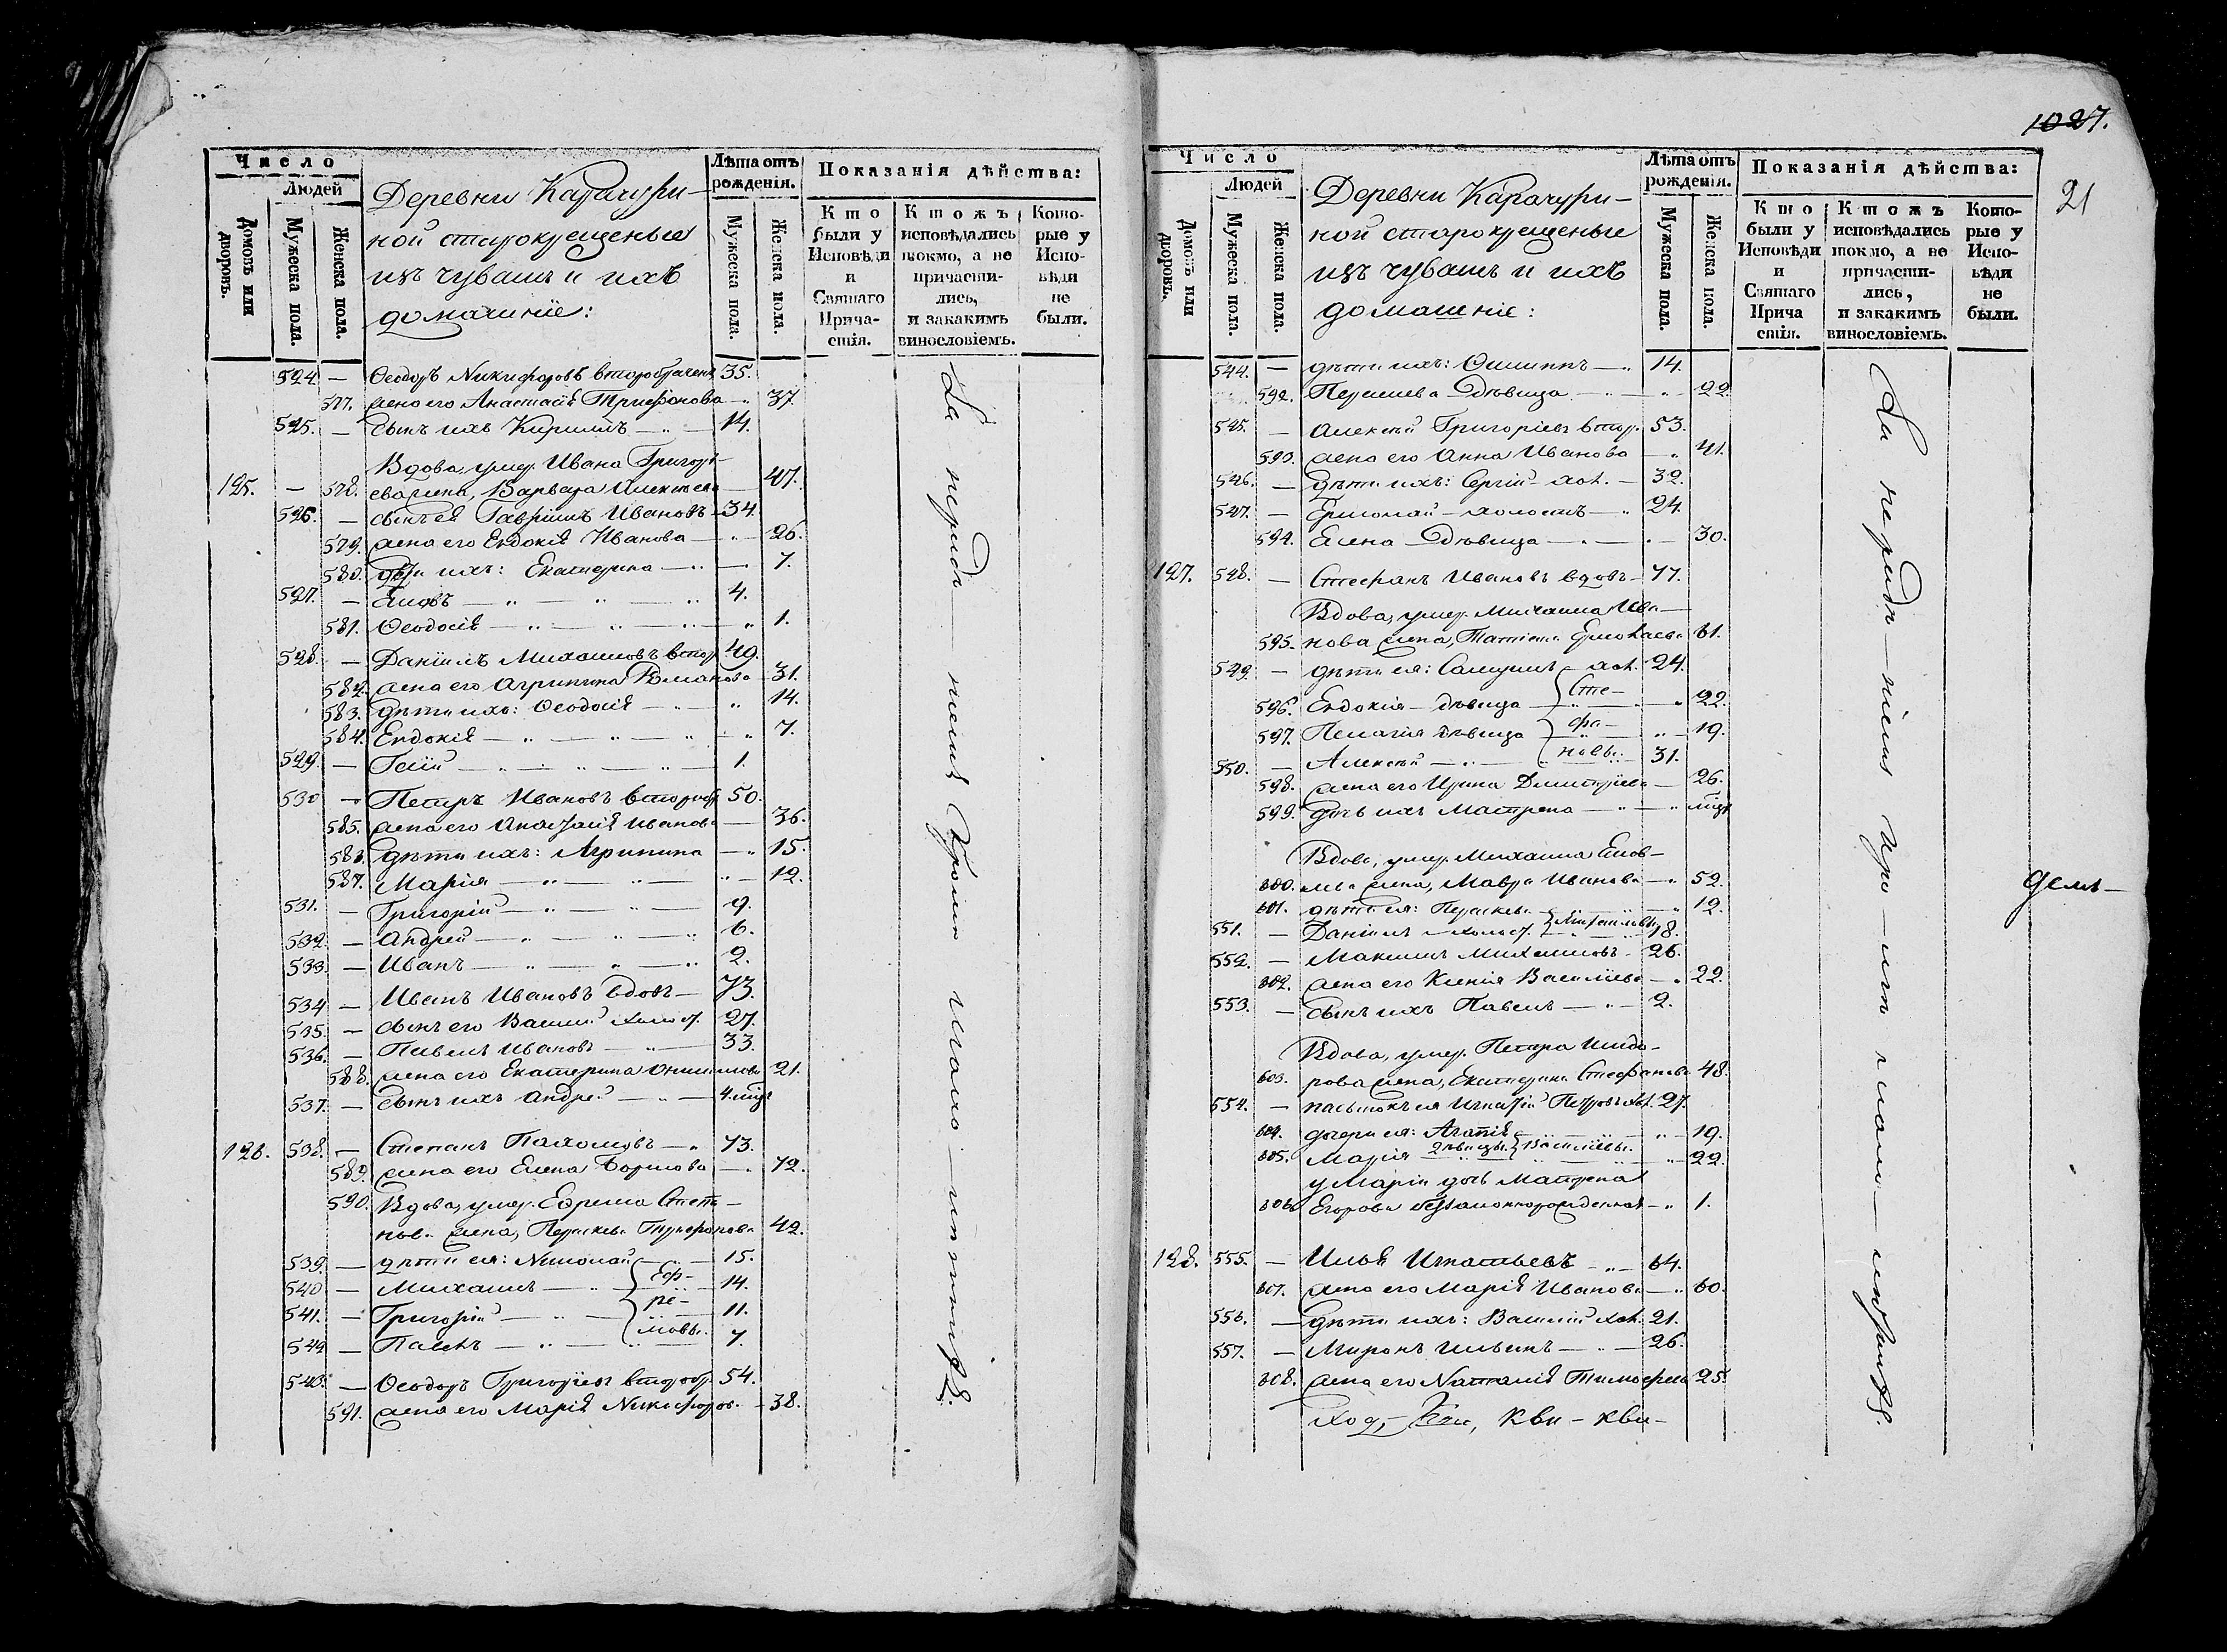 Число
Людей
Домовъ или дворовъ.
Мужеска пола.
Женска пола.
Деревни Карачури-
ной старокрещеные
изъ чувашъ и ихъ
домашніе:
Лѣта отъ
рожденія.
Мужеска пола.
Женска пола.
Показанія дѣйства:
Кто были у Исповѣди и Святаго Причастія.
Ктожъ исповѣдались токмо, а не причастились, и закакимъ винословіемъ.
Которые у Исповѣди не были.
524. — Ѳеодоръ Никифоровъ второбрачен. 35.
577. жена его Анастасія Трифонова — 37.
525. — сынъ ихъ Кириллъ — 14.
Вдова, умер. Ивана Григорь-
125. — 578. ева жена, Варвара Алексѣева — 47.
526. — сынъ ея Гавріилъ Ивановъ — 34.
579. жена его Евдокія Иванова — 26.
580. дѣти ихъ: Екатерина — 7.
527. — Іаковъ — 4.
581. Ѳеодосія — 1.
528. — Даніилъ Михайловъ втор. 49.
582. жена его Агрипина Романова 31.
583. дѣти ихъ: Ѳеодосія — 14.
584. Евдокія — 7.
529. — — 1.
530 — Петръ Ивановъ второбр. 50.
585. жена его Анастасія Иванова — 36.
586. дѣти ихъ: Агрипина — 15.
587. Марія — 12.
531. — Григорій — 9.
532. — Андрей — 6.
533. — Иванъ — 2.
534 — Иванъ Ивановъ вдовъ — 73.
535. — сынъ его Василій холост. 27.
536. — Павелъ Ивановъ — 33.
588. жена его Екатерина 21.
537. — сынъ ихъ Андрей —
126. 538. — Степанъ Пахомовъ — 73.
589. жена его Елена Борисова — 72.
590. Вдова, умер. Ефрема Степа-
нова жена, Параскева Трифонова 42.
539. — дѣти ея: Николай — 15.
540 — Михаилъ — Еф- 14.
541. — Григорій — ре- 11.
542 — Павелъ — мовы. 7.
543. — Ѳеодоръ Григорьевъ второбр. 54.
591. жена его Марія Никифоров. — 38.
1027.
21
Число
Людей
Домовъ или дворовъ.
Мужеска пола.
Женска пола.
Деревни Карачури-
ной старокрещеные
изъ чувашъ и ихъ
домашніе:
Лѣта отъ
рожденія.
Мужеска пола.
Женска пола.
Показанія дѣйства:
Кто были у Исповѣди и Святаго Прича стія.
Ктожъ исповѣдались токмо, а не причастились, и закакимъ винословіемъ.
Которые у Исповѣди не были.
544. — дѣти ихъ: Филиппъ — 14.
592. Параскева дѣвица — 22.
545. — Алексѣй Григорьевъ втор. 53.
593. жена его Анна Иванова — 41.
546. — дѣти ихъ: Сергій — хол. — 32.
547. — Ермолай — холостъ — 24.
594. Елена дѣвица — 30.
127. 548. — Стефанъ Ивановъ вдовъ — 77.
Вдова, умер. Михаила Ива-
595. нова жена, Татіана Ермолаева 61.
549. — дѣти ея: Самуилъ — хол. 24.
596. Евдокія — дѣвица Сте- 22.
597. Пелагія дѣвица фа- 19.
550. — Алексѣй — новы. 31.
598. жена его Ирина Димитріева — 26.
599. дочь ихъ Матрена —
Вдова, умер. Михаила
600. жена, Мавра Иванова — 52.
601. дѣти ея: Параскева — 12.
551. — Даніилъ — холост. Михайловы 18.
552. — Максимъ Михайловъ 26.
602. жена его Ксенія Василіева — 22.
553. — сынъ ихъ Павелъ — 2.
Вдова, умер. Петра Исидо-
603. рова жена, Екатерина Стефанова 48.
554. — пасынокъ ея Игнатій Петровъ хол. 27.
604. дочери ея: Агафія — 19.
605. Марія дѣвицы. Василіевы. 22.
у Маріи дочь Матрена
606. Егорова незаконнорожденная — 1.
128. 555. — Илья Игнатьевъ — 64.
607. жена его Марія Иванова — 60.
556. — дѣти ихъ: Василій хол. 21.
557. — Миронъ Ильинъ — 26.
608. жена его Наталія Тимофеева 25.